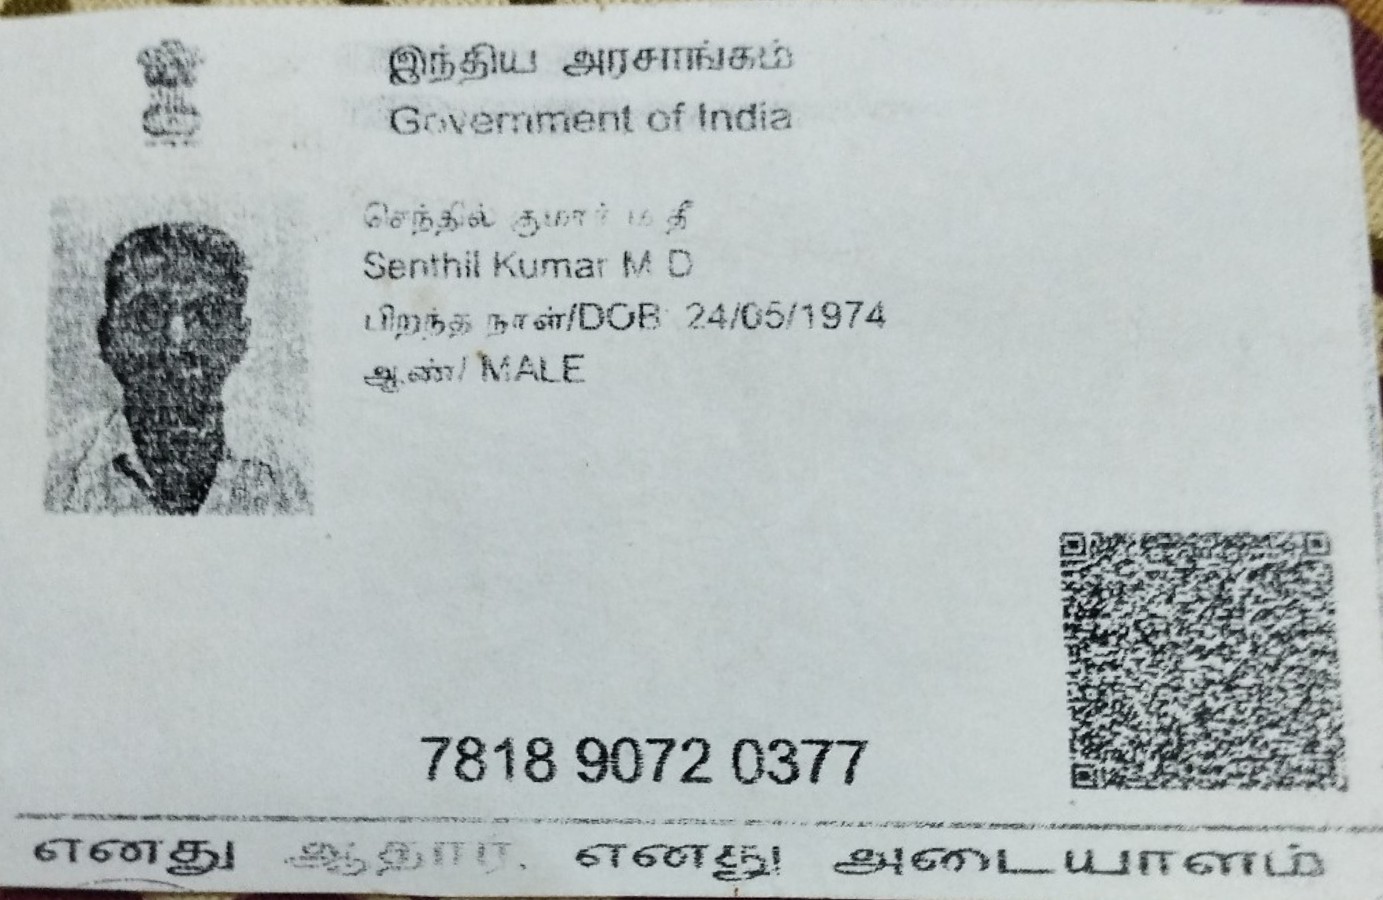 இந்திய அரசாங்கம்
Government of India
செந்தில் குமார் ம தீ
Senthil Kumar M D
பிறந்த நாள்/DOB 24/05/1974
ஆண்/ MALE
7818 9072 0377
எனது ஆதார், எனது அடையாளம்